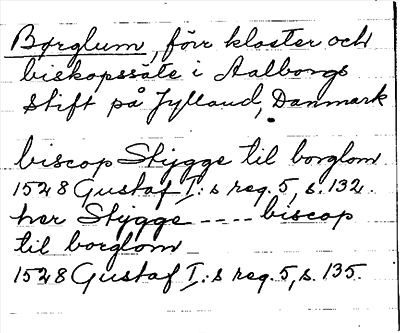 Børglum, förr kloster och
biskopssäte i Aalborgs
stift på Jylland, Danmark
biscop Stygge til borglom
1528 Gustaf I:s reg. 5, s. 132.
her Stygge ---- biscop
til borglom
1528 Gustaf I:s reg. 5, s. 135.